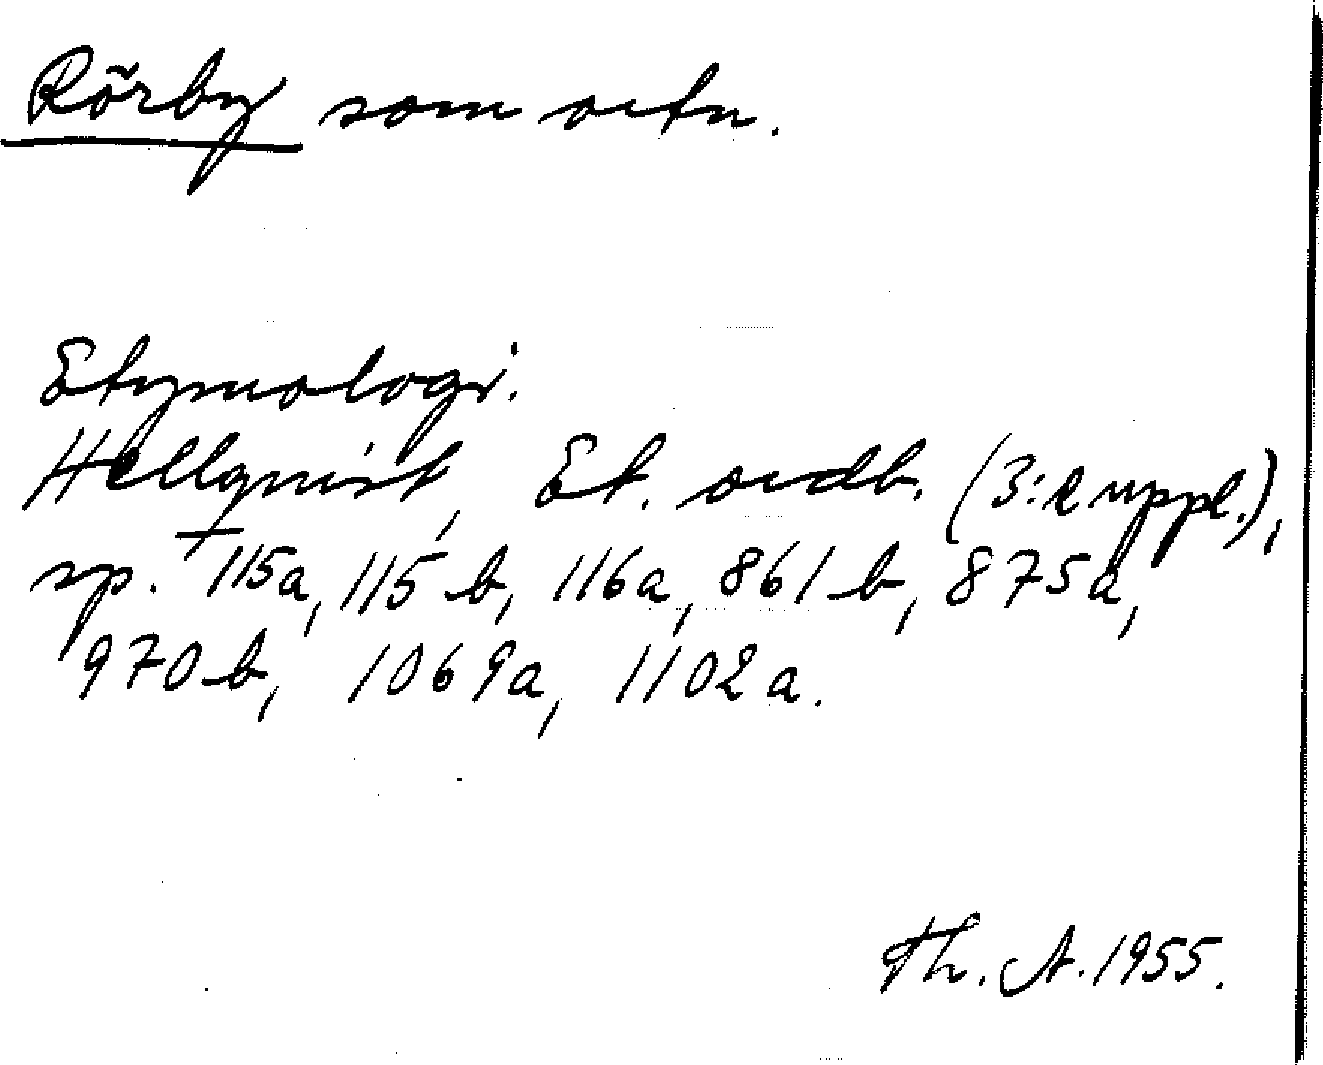 Rörby som ortn.
Etymologi.
Hellquist, Et. ordb. (3:e uppl.),
sp. 115a, 115b, 116a, 861b, 875a,
970b, 1069a, 1102a.
Th. A. 1955.